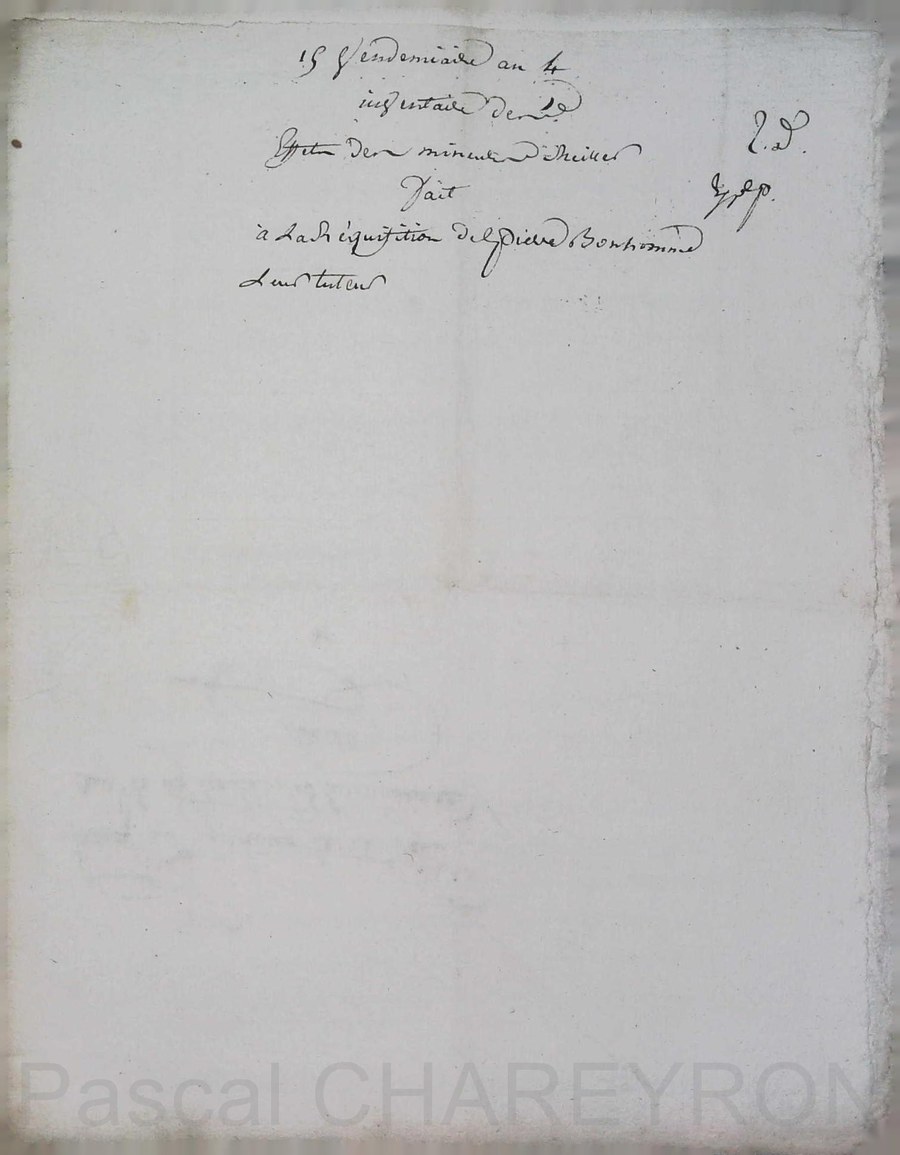 15 Vendemiaire an 4
inventaire des
Effets des mineurs
fait
à La Réquisition de pierre Bonhomme
Leur tuteur
Pascal CHAREYRON